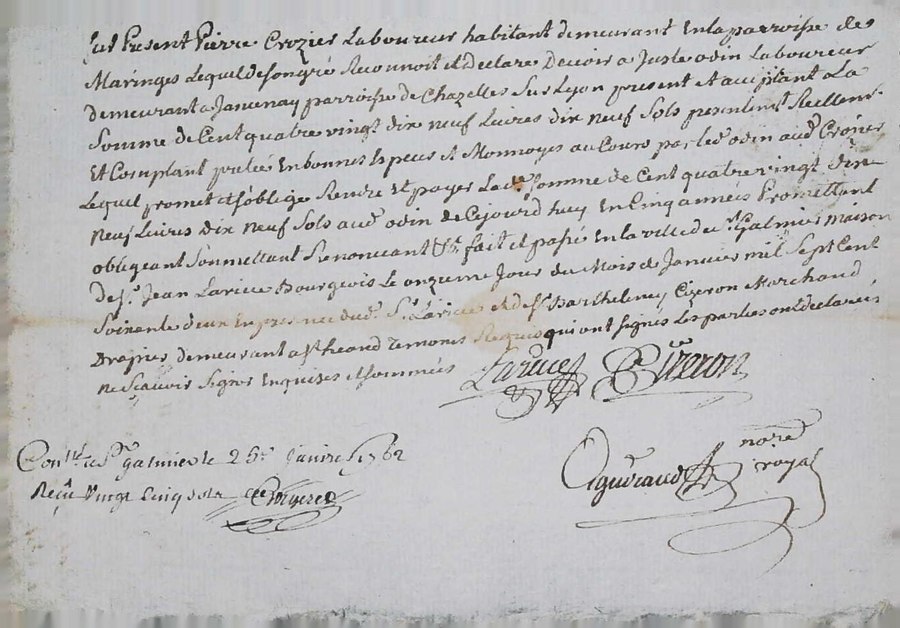 fut Present Pierre Crozier Laboureur habitant demeurant En la parroisse de
Maringes Lequel de son gré Reconnoit et declare Devoir a Juste odin Laboureur
demeurant a parroisse de Chazelles Sur Lyon present et acceptant La
Somme de Cent quatre vingt dix neuf Livres dix neuf Sols presentement Reellemt
Et Comptant pretée En bonnes Especes et Monnoyes au Cours par led odin aud Crozier
Lequel promet et s'oblige Rendre Et payer Lade Somme de Cent quatre vingt dix
neuf Livres dix neuf Sols aud odin de Cejourd'huy En Cinq années Promettant
obligeant Soumettant Renonceant &c. fait et passé En la ville de St Galmier maison
de Sr. Jean Larüe Bourgeois Le onzieme Jour du Mois de Janvier mil Sept Cent
Soixante deux En presence dud. Sr. Larüe et de Sr Barthelemy Cizeron Marchand
Drapier demeurant a St heand temoins Requis qui ont signés Les parties ont declarées
ne Sçavoir Signer Enquises et sommées
Larüe Cizeron
Conllé a St galmier le 25e Janvier 1762
Reçu Vingt Cinq sols
notre
royal